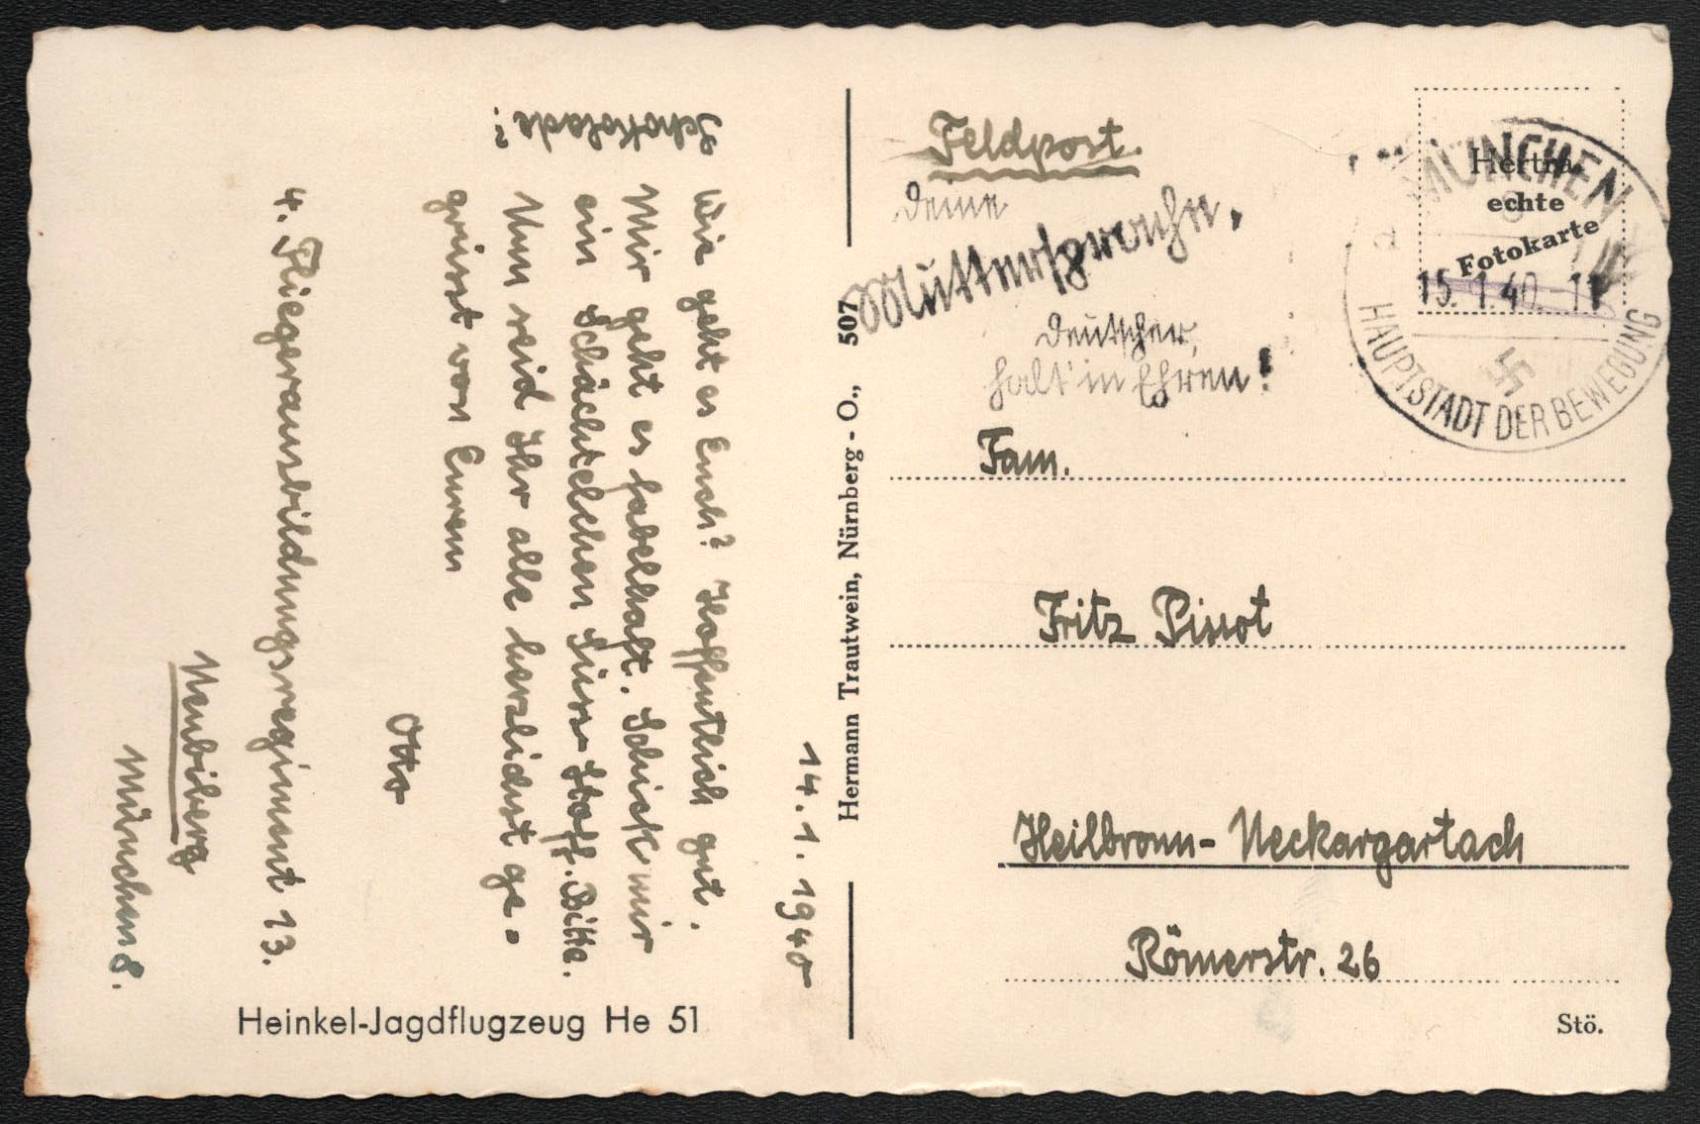 14.1.1940
Wie geht es Euch? Hoffentlich gut.
Mir geht es fabelhaft. Schick mir
ein Schächtelchen Süss-Stoff. Bitte.
Nun seid Ihr alle herzlichst ge-
grüsst von Eurem
Otto
4. Fliegerausbildungsregiment 13.
Neubiberg
München 8.
Schokolade?
Heinkel-Jagdflugzeug He 51
Hermann Trautwein, Nürnberg-O., 507
Feldpost.
Deine
Muttersprache,
Deutscher,
halt' in Ehren!
Hertra
echte
Fotokarte
MÜNCHEN
8
a
15.1.40.-11
HAUPTSTADT DER BEWEGUNG
Fam.
Fritz Pissot
Heilbronn-Neckargartach
Römerstr. 26
Stö.